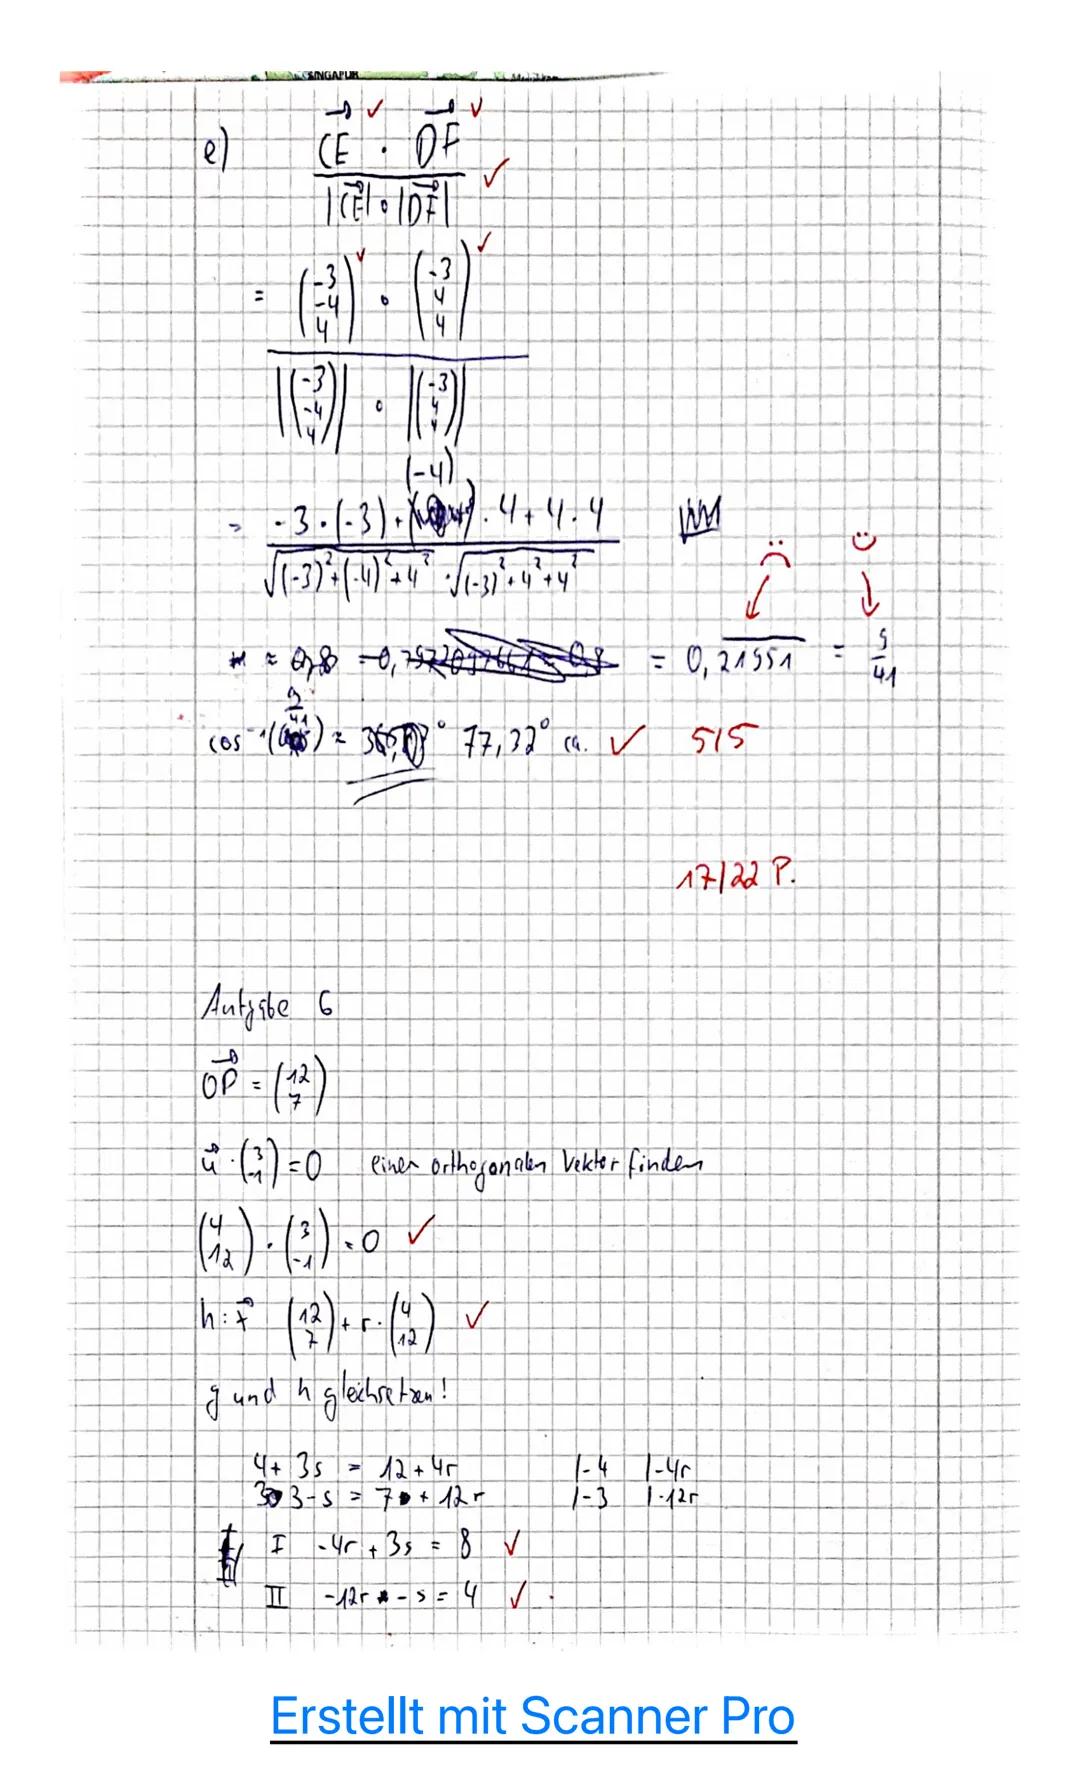 SINGAPUR
e) CE · DF
|CE| · |DF|
= (-3 -4 4) · (-3 4 4)
|(-3 -4 4)| · |(-3 4 4)|
(-4)
= -3·(-3)+ · 4 + 4·4
√(-3)²+(-4)²+4² · √(-3)²+4²+4²
= 0,21951 = 9/41
cos⁻¹(9/41) ≈ 77,32° ca. ✓ 5/5
17/22 P.
Aufgabe 6
OP = (12 7)
u · (3 -1) = 0 einen orthogonalen Vektor finden
(4 12) · (3 -1) = 0 ✓
h: x (12 7) + r · (4 12) ✓
g und h gleichsetzen!
4 + 3s = 12 + 4r |-4 |-4r
3 - s = 7 + 12r |-3 |-12r
I -4r + 3s = 8 ✓
II -12r - s = 4 ✓
Erstellt mit Scanner Pro